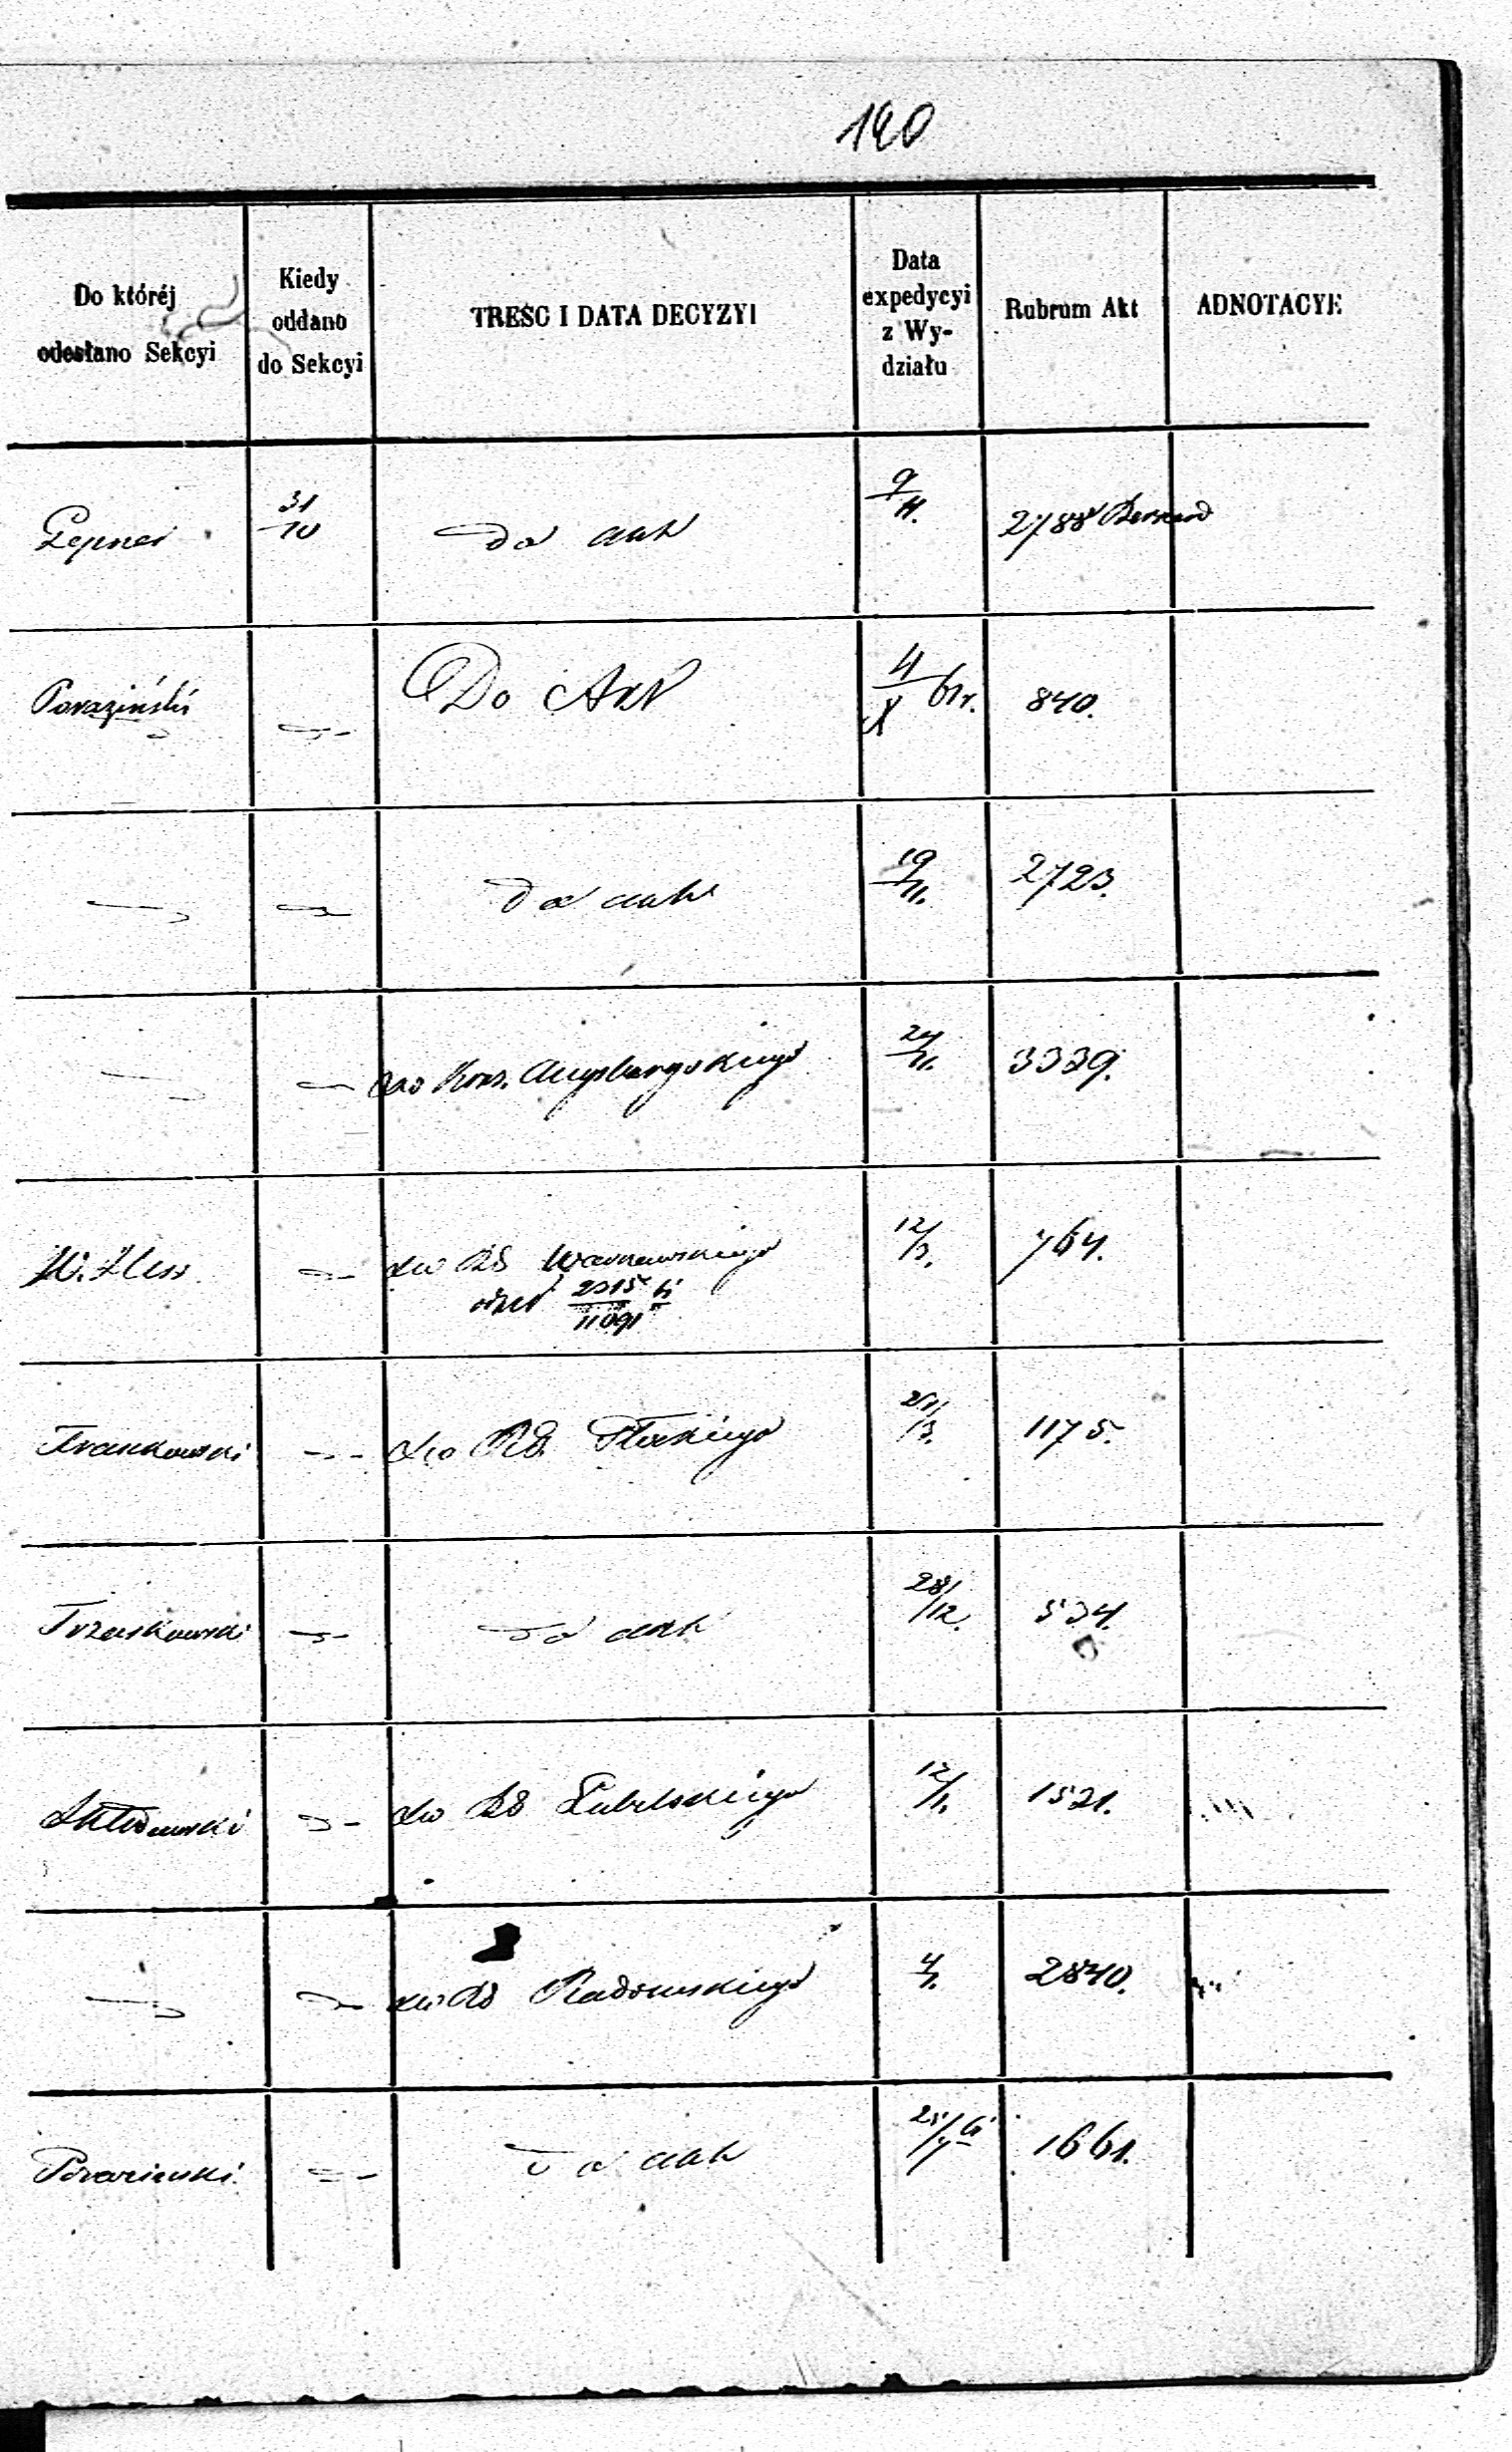 120
Do któréj odesłano Sekcyi
Kiedy oddano do Sekcyi
TREŚĆ I DATA DECYZYI
Data expedycyi z Wy- działu
Rubrum Akt
ADNOTACYE
Lepner 31/10 do akt 9/11. 2788
Poraziński Do Akt 4/X 61r. 840.
do akt 19/11. 2723.
do Kons. Augsburgskiego 24/11. 3339.
W. Hess do RG Warszawskiego 12/3. 764.
2315/11091
Frankowski do RG. Płockiego 21/3. 1175.
Trzaskowski do akt 28/12. 534.
Skłodowski do RG Lubelskiego 12/1. 1521.
do RG Radomskiego 4/1. 2840.
Poraziński do akt 1661.